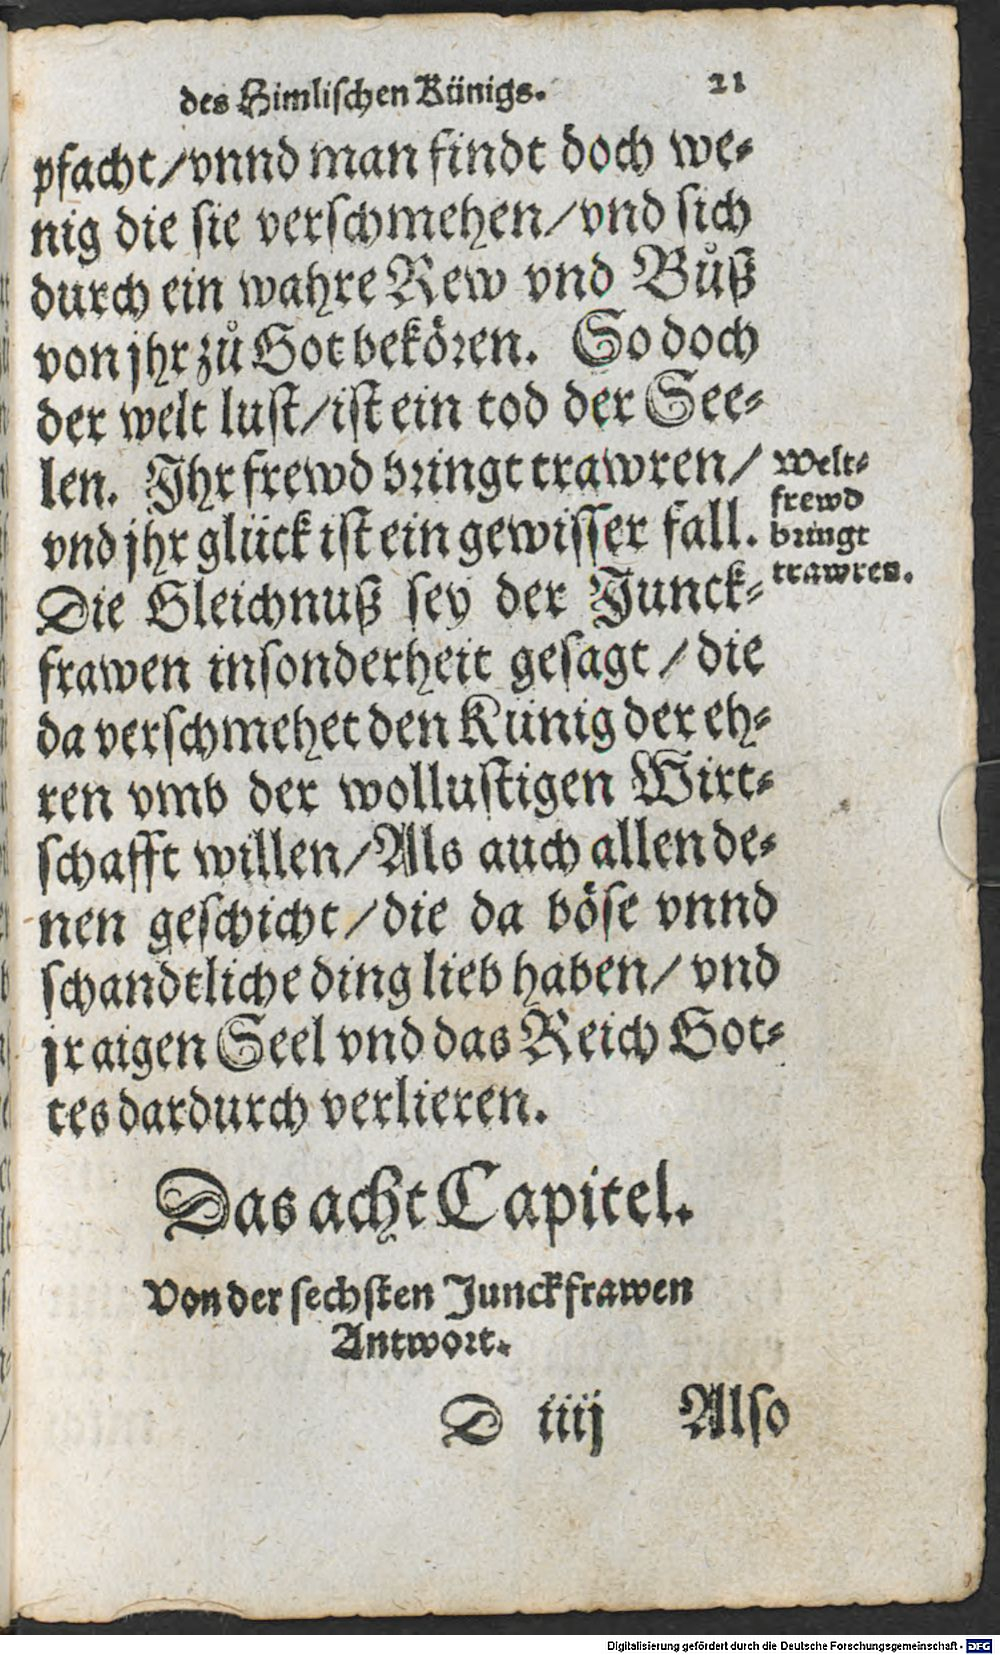 des Himlischen Künigs. 21
pfacht/vnnd man findt doch we-
nig die sie verschmehen/vnd sich
durch ein wahre Rew vnd Bůß
von jhr zů Got bekören. So doch
der welt lust/ist ein tod der See-
len. Jhr frewd bringt trawren/
vnd jhr glück ist ein gewisser fall.
Welt-
frewd
bringt
trawren.
Die Gleichnuß sey der Junck-
frawen insonderheit gesagt/die
da verschmehet den Künig der eh-
ren vmb der wollustigen Wirt-
schafft willen/Als auch allen de-
nen geschicht/die da böse vnnd
schandtliche ding lieb haben/vnd
jr aigen Seel vnd das Reich Got-
tes dardurch verlieren.
Das acht Capitel.
Von der sechsten Junckfrawen
Antwort.
D iiij Also
Digitalisierung gefördert durch die Deutsche Forschungsgemeinschaft - DFG